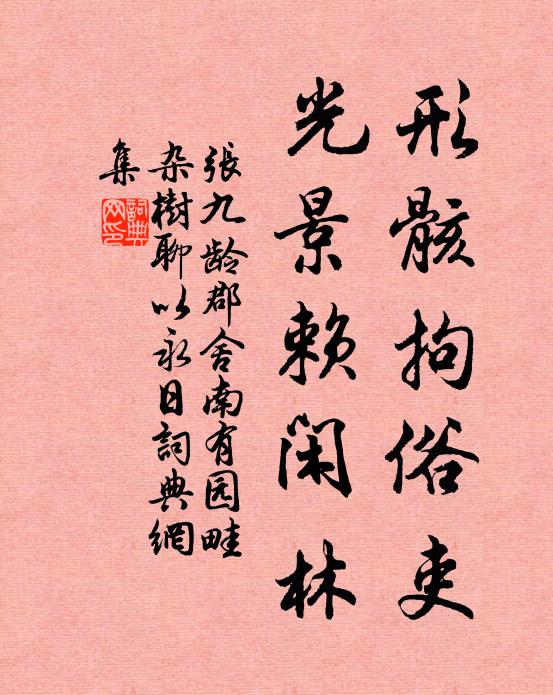 形骸拘俗吏
光景赖閑林
張九龄郡舍南有园畦
杂樹聊以永日詞典網
集
詞典
网印